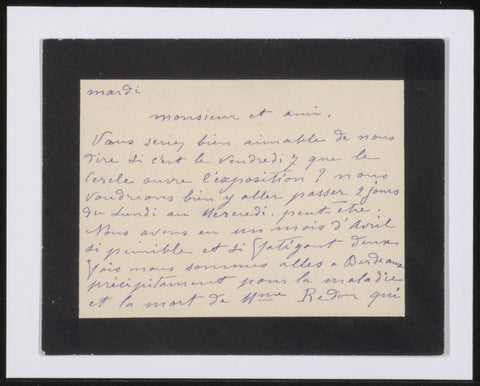 mardi
monsieur et ami,
Vous seriez bien aimable de nous
dire si c'est le vendredi 7 que le
Cercle ouvre l'exposition ? nous
voudrions bien y aller passer 2 jours
du Lundi au Mercredi, peut être.
Nous avons eu un mois d'Avril
si pénible et si fatigant deux
fois nous sommes allés a Bordeaux
précipitament pour la maladie
et la mort de Mme Redon qui